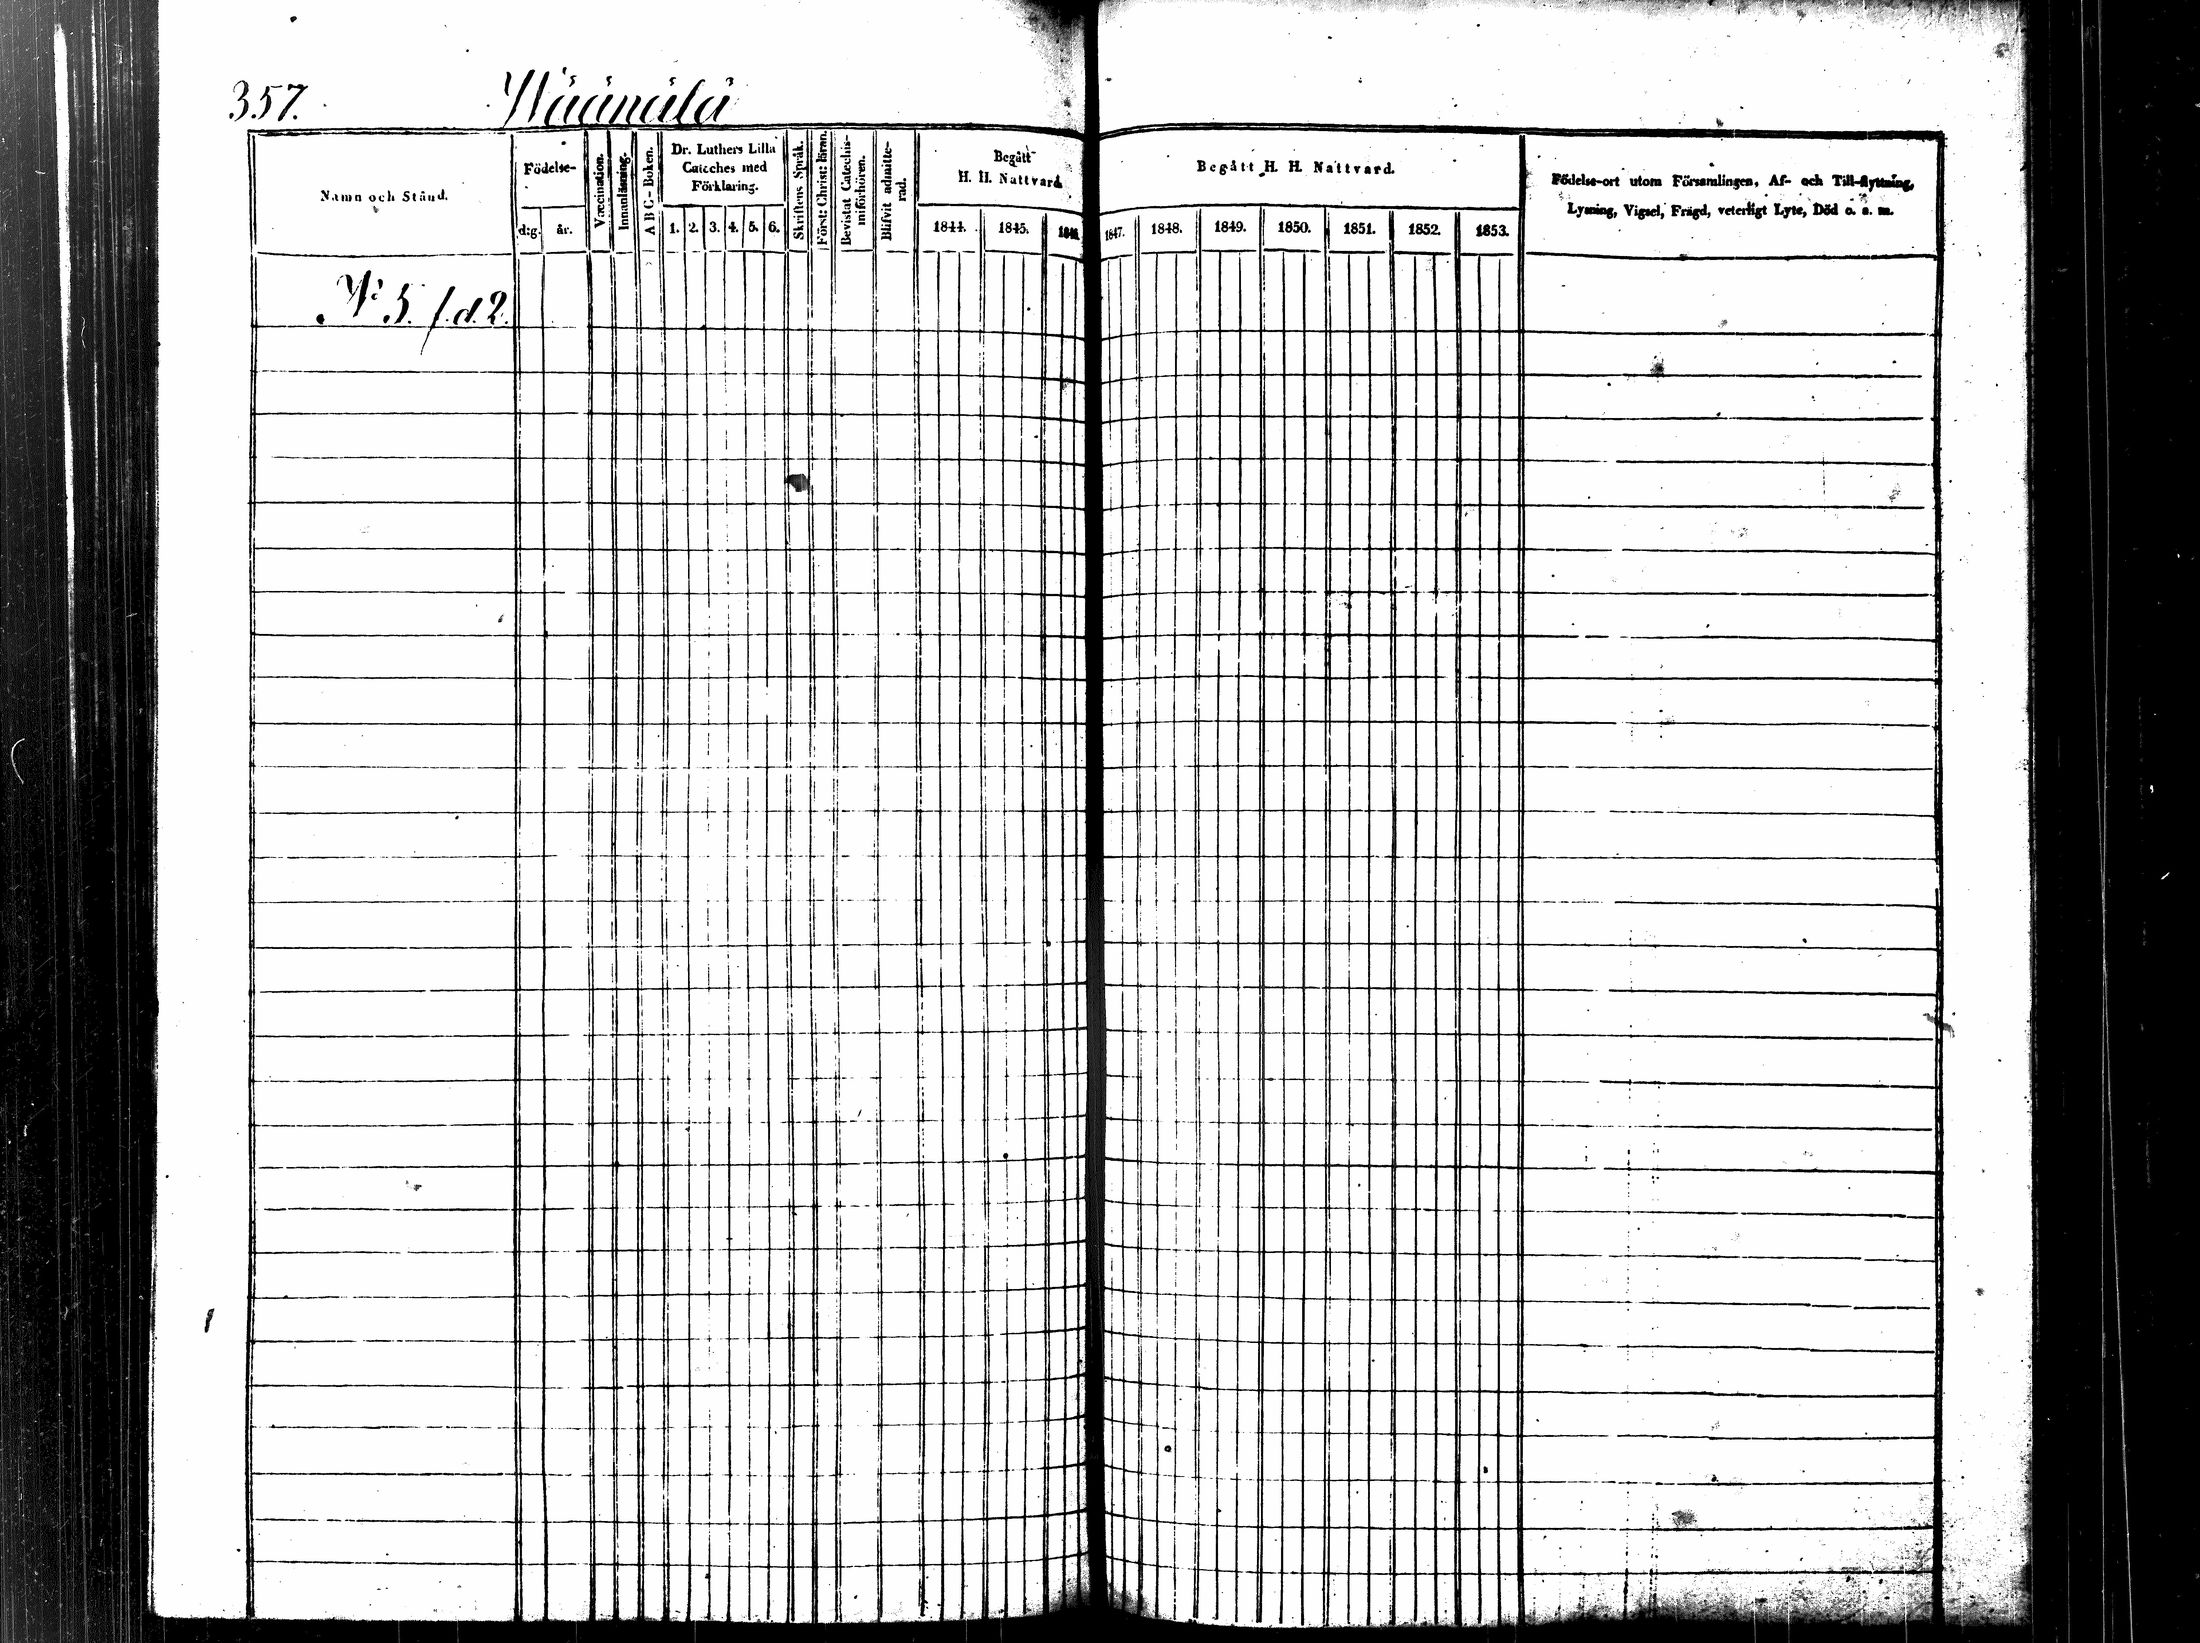 357. Wäänälä
Namn och Stånd.
Födelse-
d:g.
år.
Vaccination.
Innanläsning.
A B C - Boken.
Dr. Luthers Lilla
Cateches med
Förklaring.
1. 2. 3. 4. 5. 6.
Skriftens Språk.
Först: Christ: läran.
Bevistat Catechis-
miförhören.
Blifvit admitte-
rad.
Begått
H. H. Nattvard
1844. 1845. 1846.
Begått H. H. Nattvard.
1847. 1848. 1849. 1850. 1851. 1852. 1853.
Födelse-ort utom Församlingen, Af- och Till-flyttning,
Lysning, Vigsel, Frägd, veterligt Lyte, Död o. s. m.
No 5. f.d. 2.